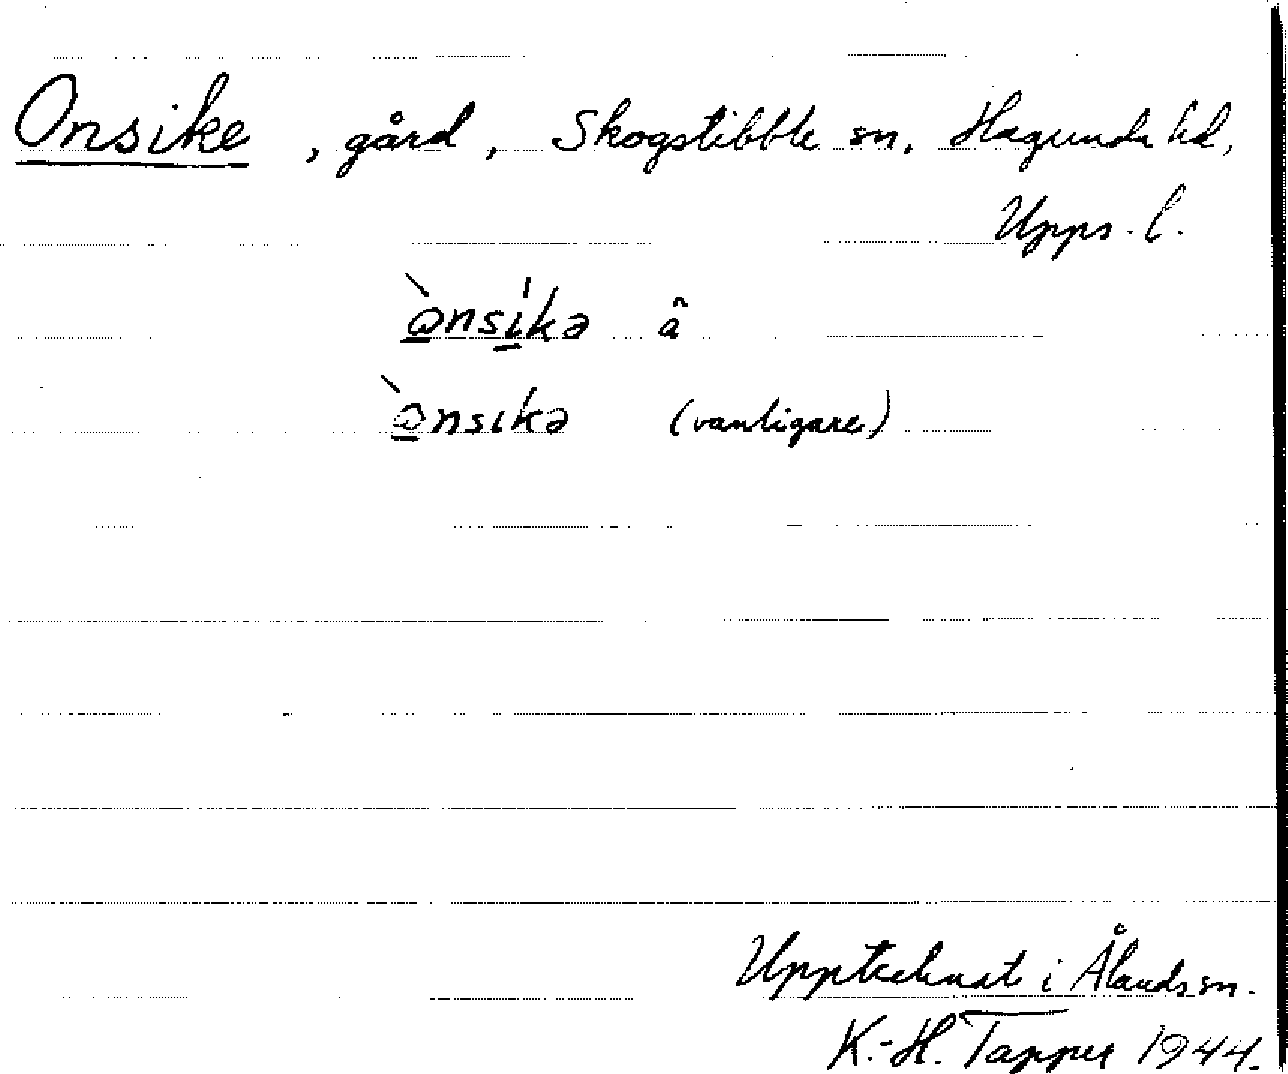 Onsike, gård, Skogstibble sn, Hagunda hd,
Upps. l.
ònsíkə å̂
ònsikə (vanligare)
Upptecknat i Ålands sn.
K.-H. Tapper 1944.